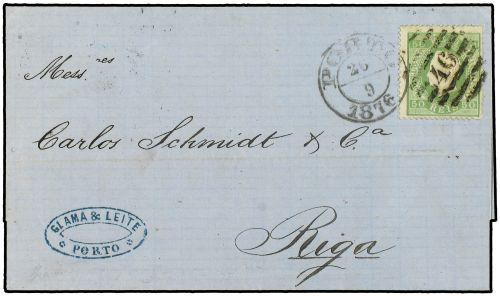 Mess.res
PORTO
26
9
1876
46
50 REIS 50
Carlos Schmidt & C.a
GLAMA & LEITE
PORTO
Riga